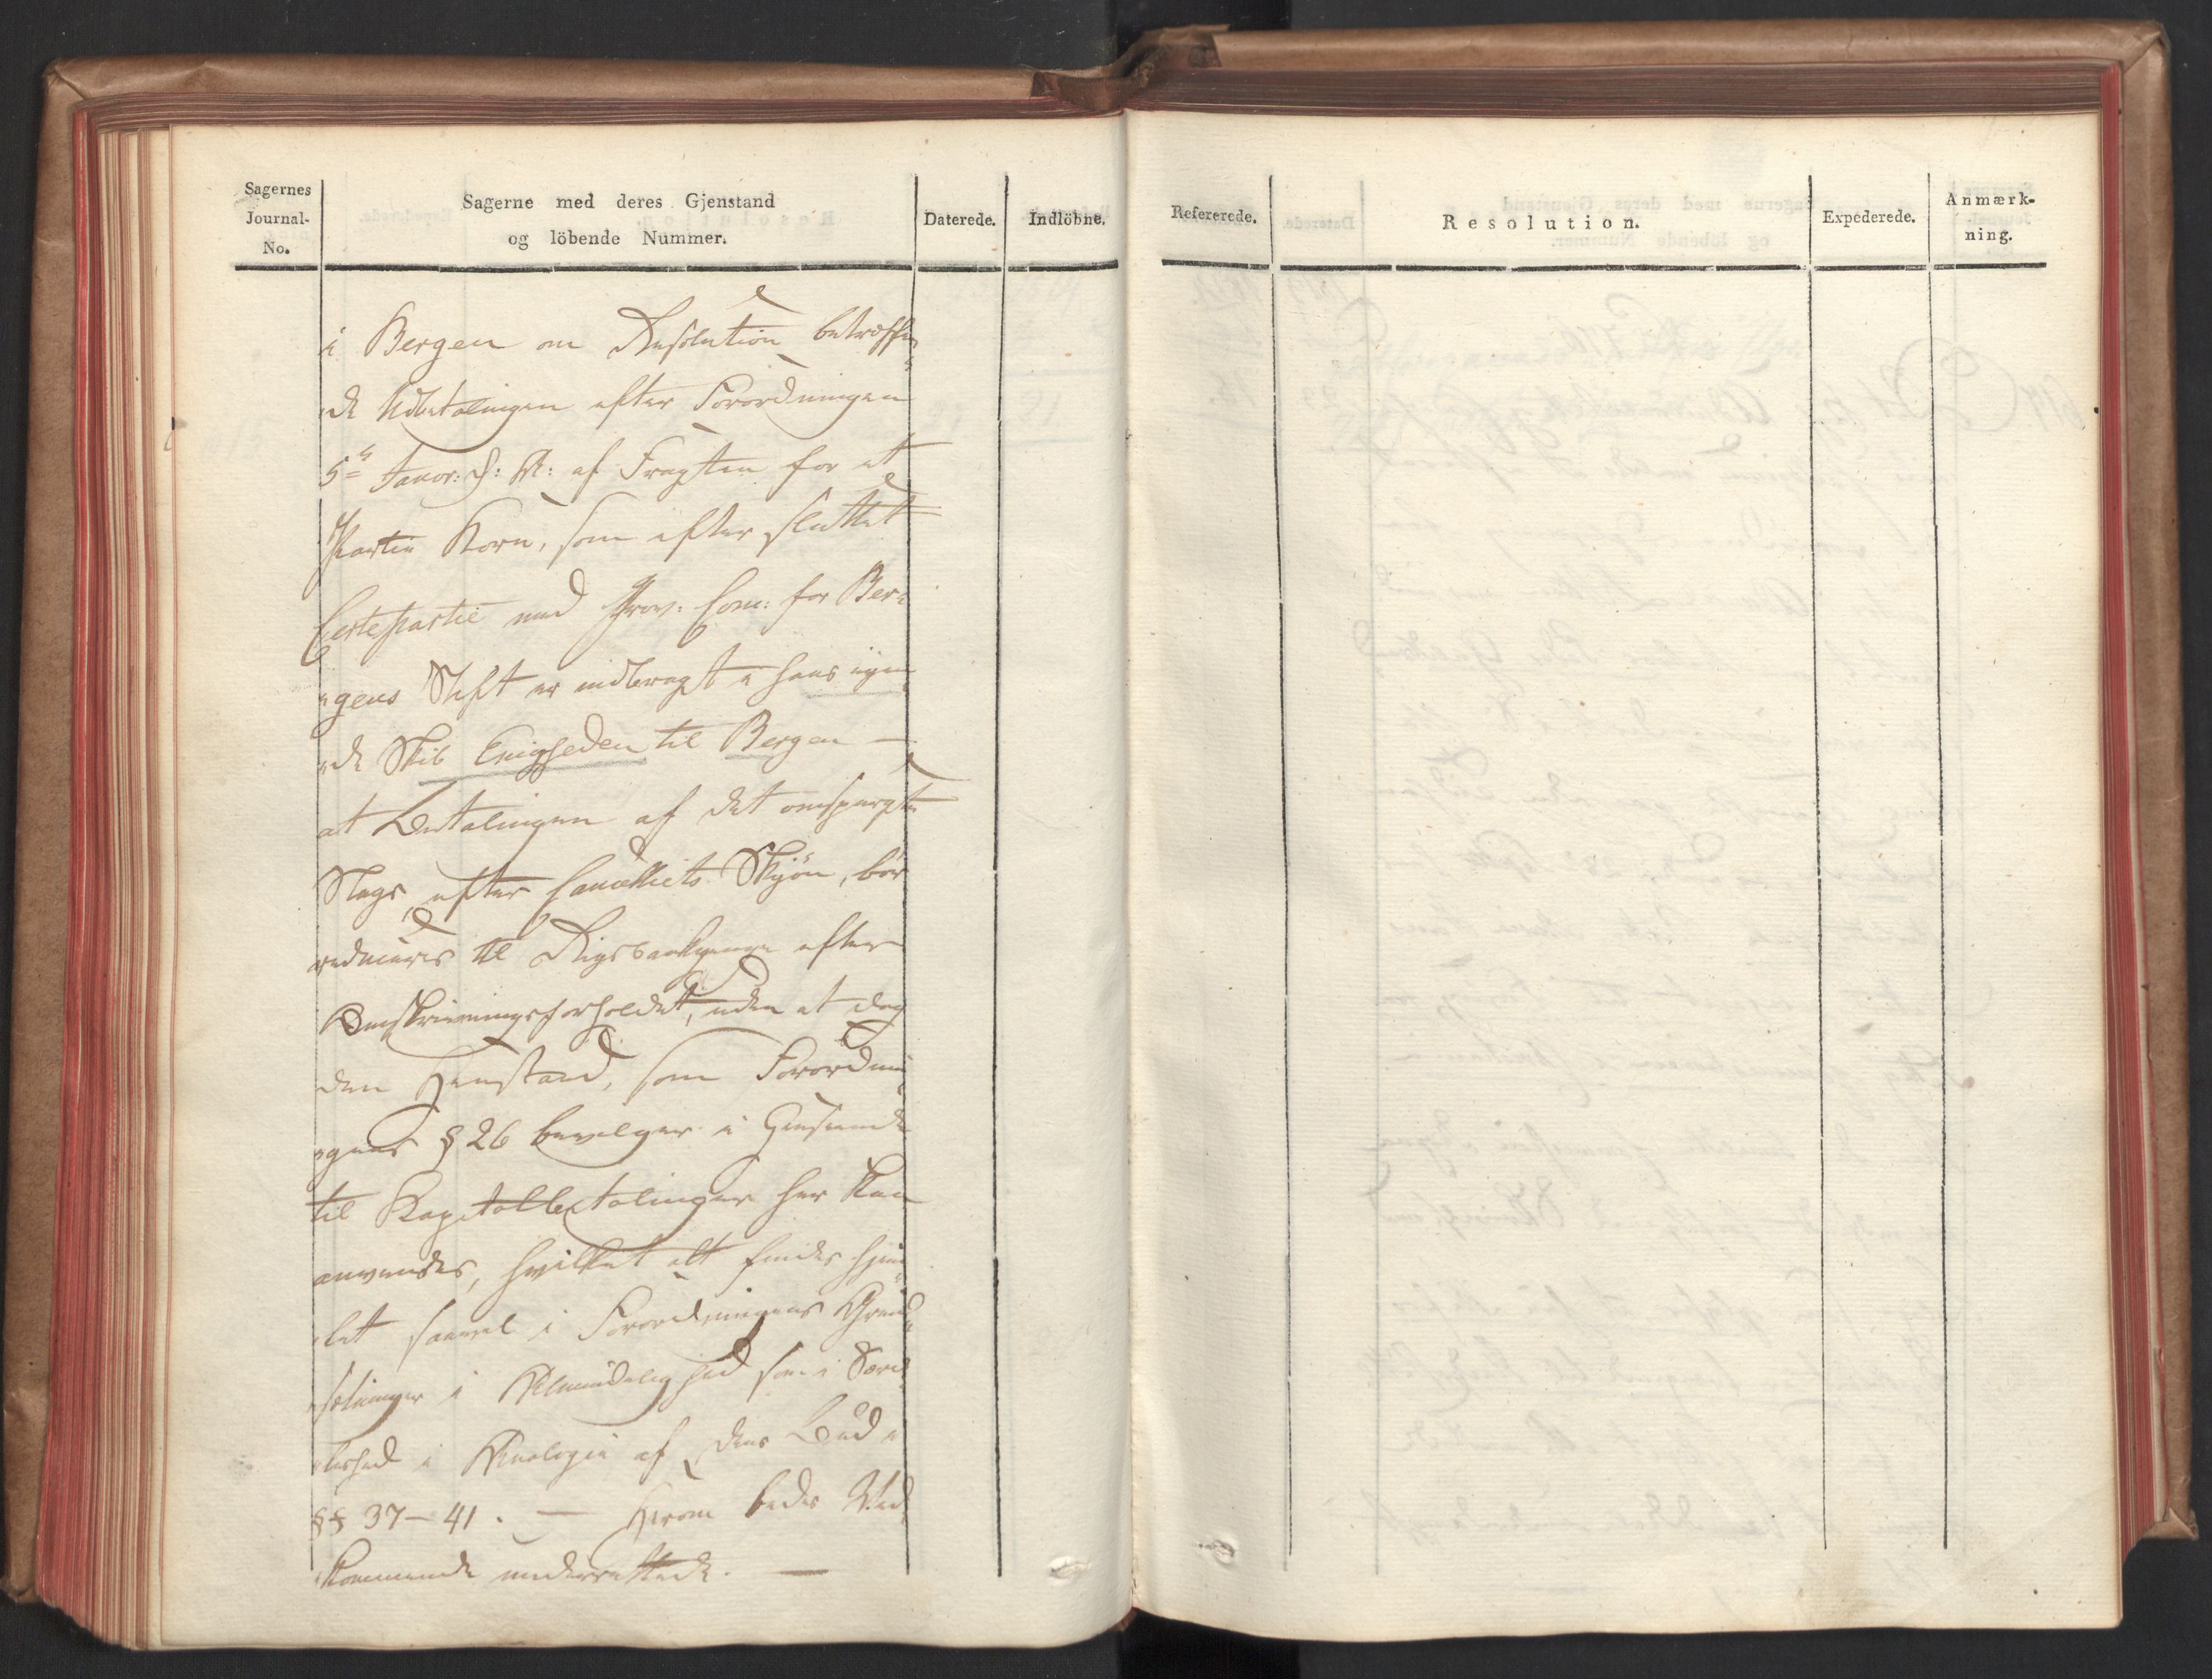 Sagernes
Journal-
No.
Sagerne med deres Gjenstand
og löbende Nummer.
Daterede.
Indlöbne.
i Bergen om Resolution betreffen
de Udbetalingen efter Forordningen
5te Janv: d: A: af Fragten for et
Partie Korn, som efter sluttet
Certepartie med Prov: Com: for Ber-
gens Stift er indbragt i hans eijen
de Skib Enigheden til Bergen —
at Betalingen af det omspurgte
Slags, efter Cancelliets Skjön, bör
reduceres til Rigsbankpenge efter
Omskrivningsforholdet, uden at dog
den Henstand, som Forordnin
gens § 26 bevilger i Henseende
til Kapitalbetalinger her kan
anvendes, hvilket alt findes hjem
let saavel i Forordningens Grund
sætninger i Almindelighed som i Sær
leshed i Analogie af dens Bud i
§§ 37—41. — Herom bedes Ved
kommende underrettede. —
Refererede.
Resolution.
Expederede.
Anmærk-
ning.